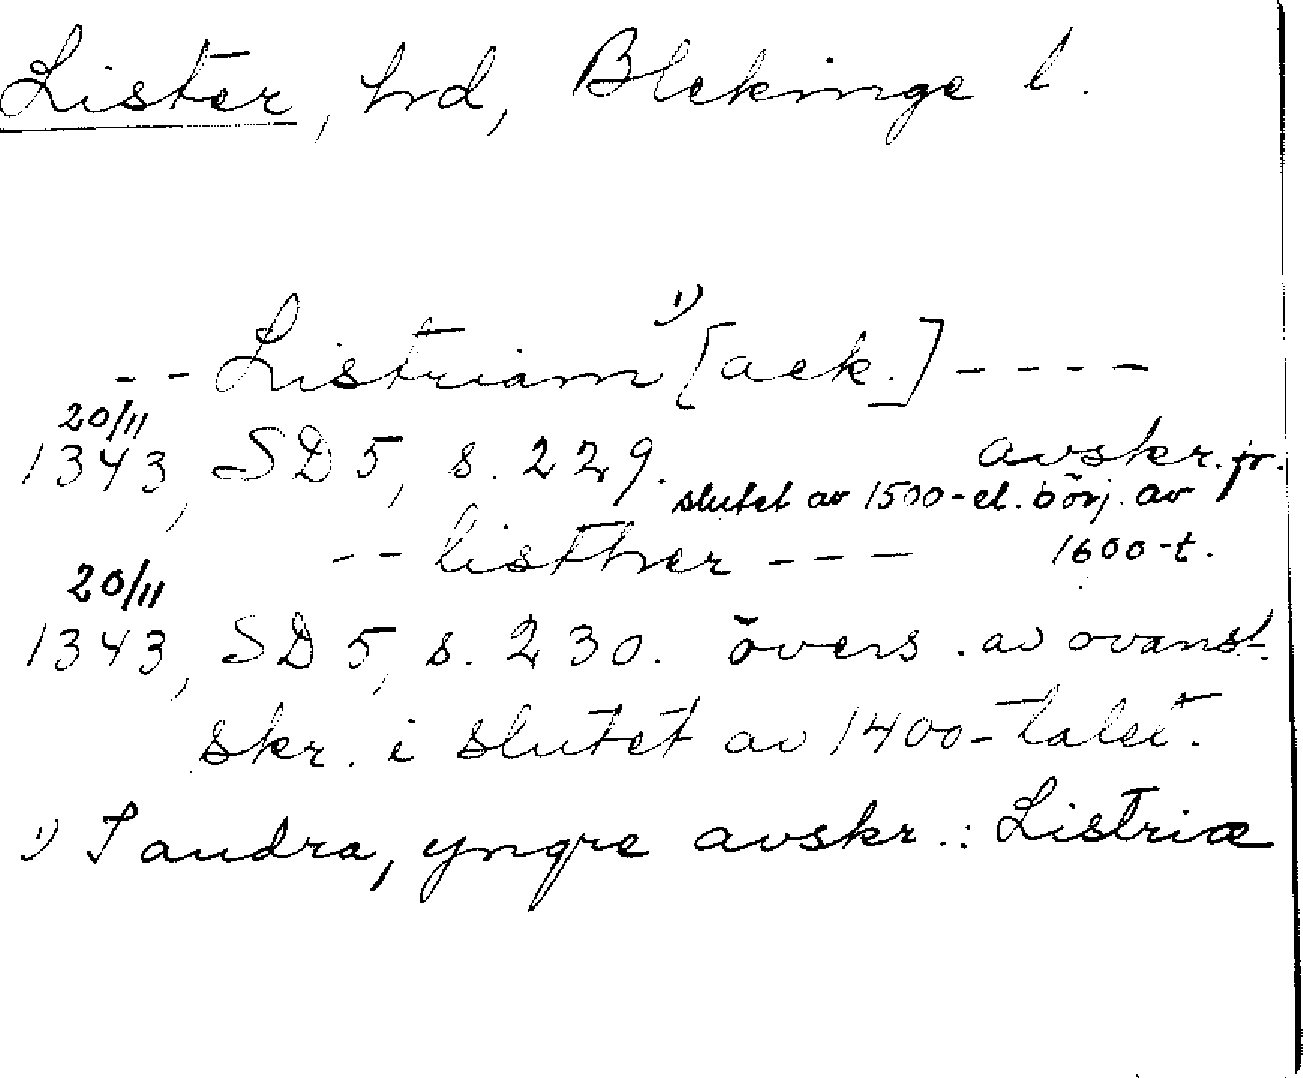 Lister, hrd, Blekinge l.
-- Listriam ¹⁾ [ack.] ----
20/11
1343, SD 5, s. 229. avskr. fr.
slutet av 1500- el. börj. av
1600-t.
-- listher ---
20/11
1343, SD 5, s. 230. övers. av ovanst.
skr. i slutet av 1400-talet.
¹⁾ I andra, yngre avskr.: Listriæ